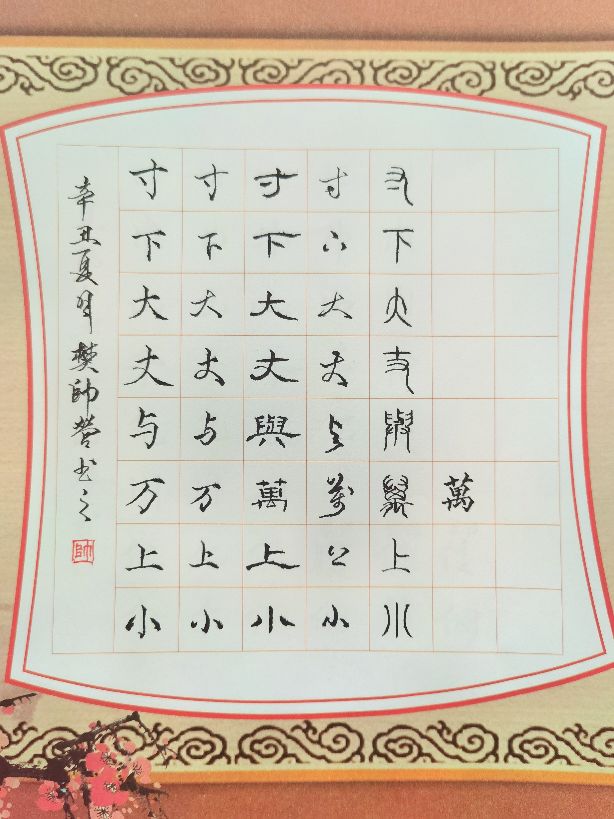 寸 寸 寸 寸 寸
下 下 下 下 下
大 大 大 大 大
丈 丈 丈 丈 丈
与 与 與 与 與
万 万 萬 萬 萬 萬
上 上 上 上 上
小 小 小 小 小
辛丑夏月樊帥營书之
帥